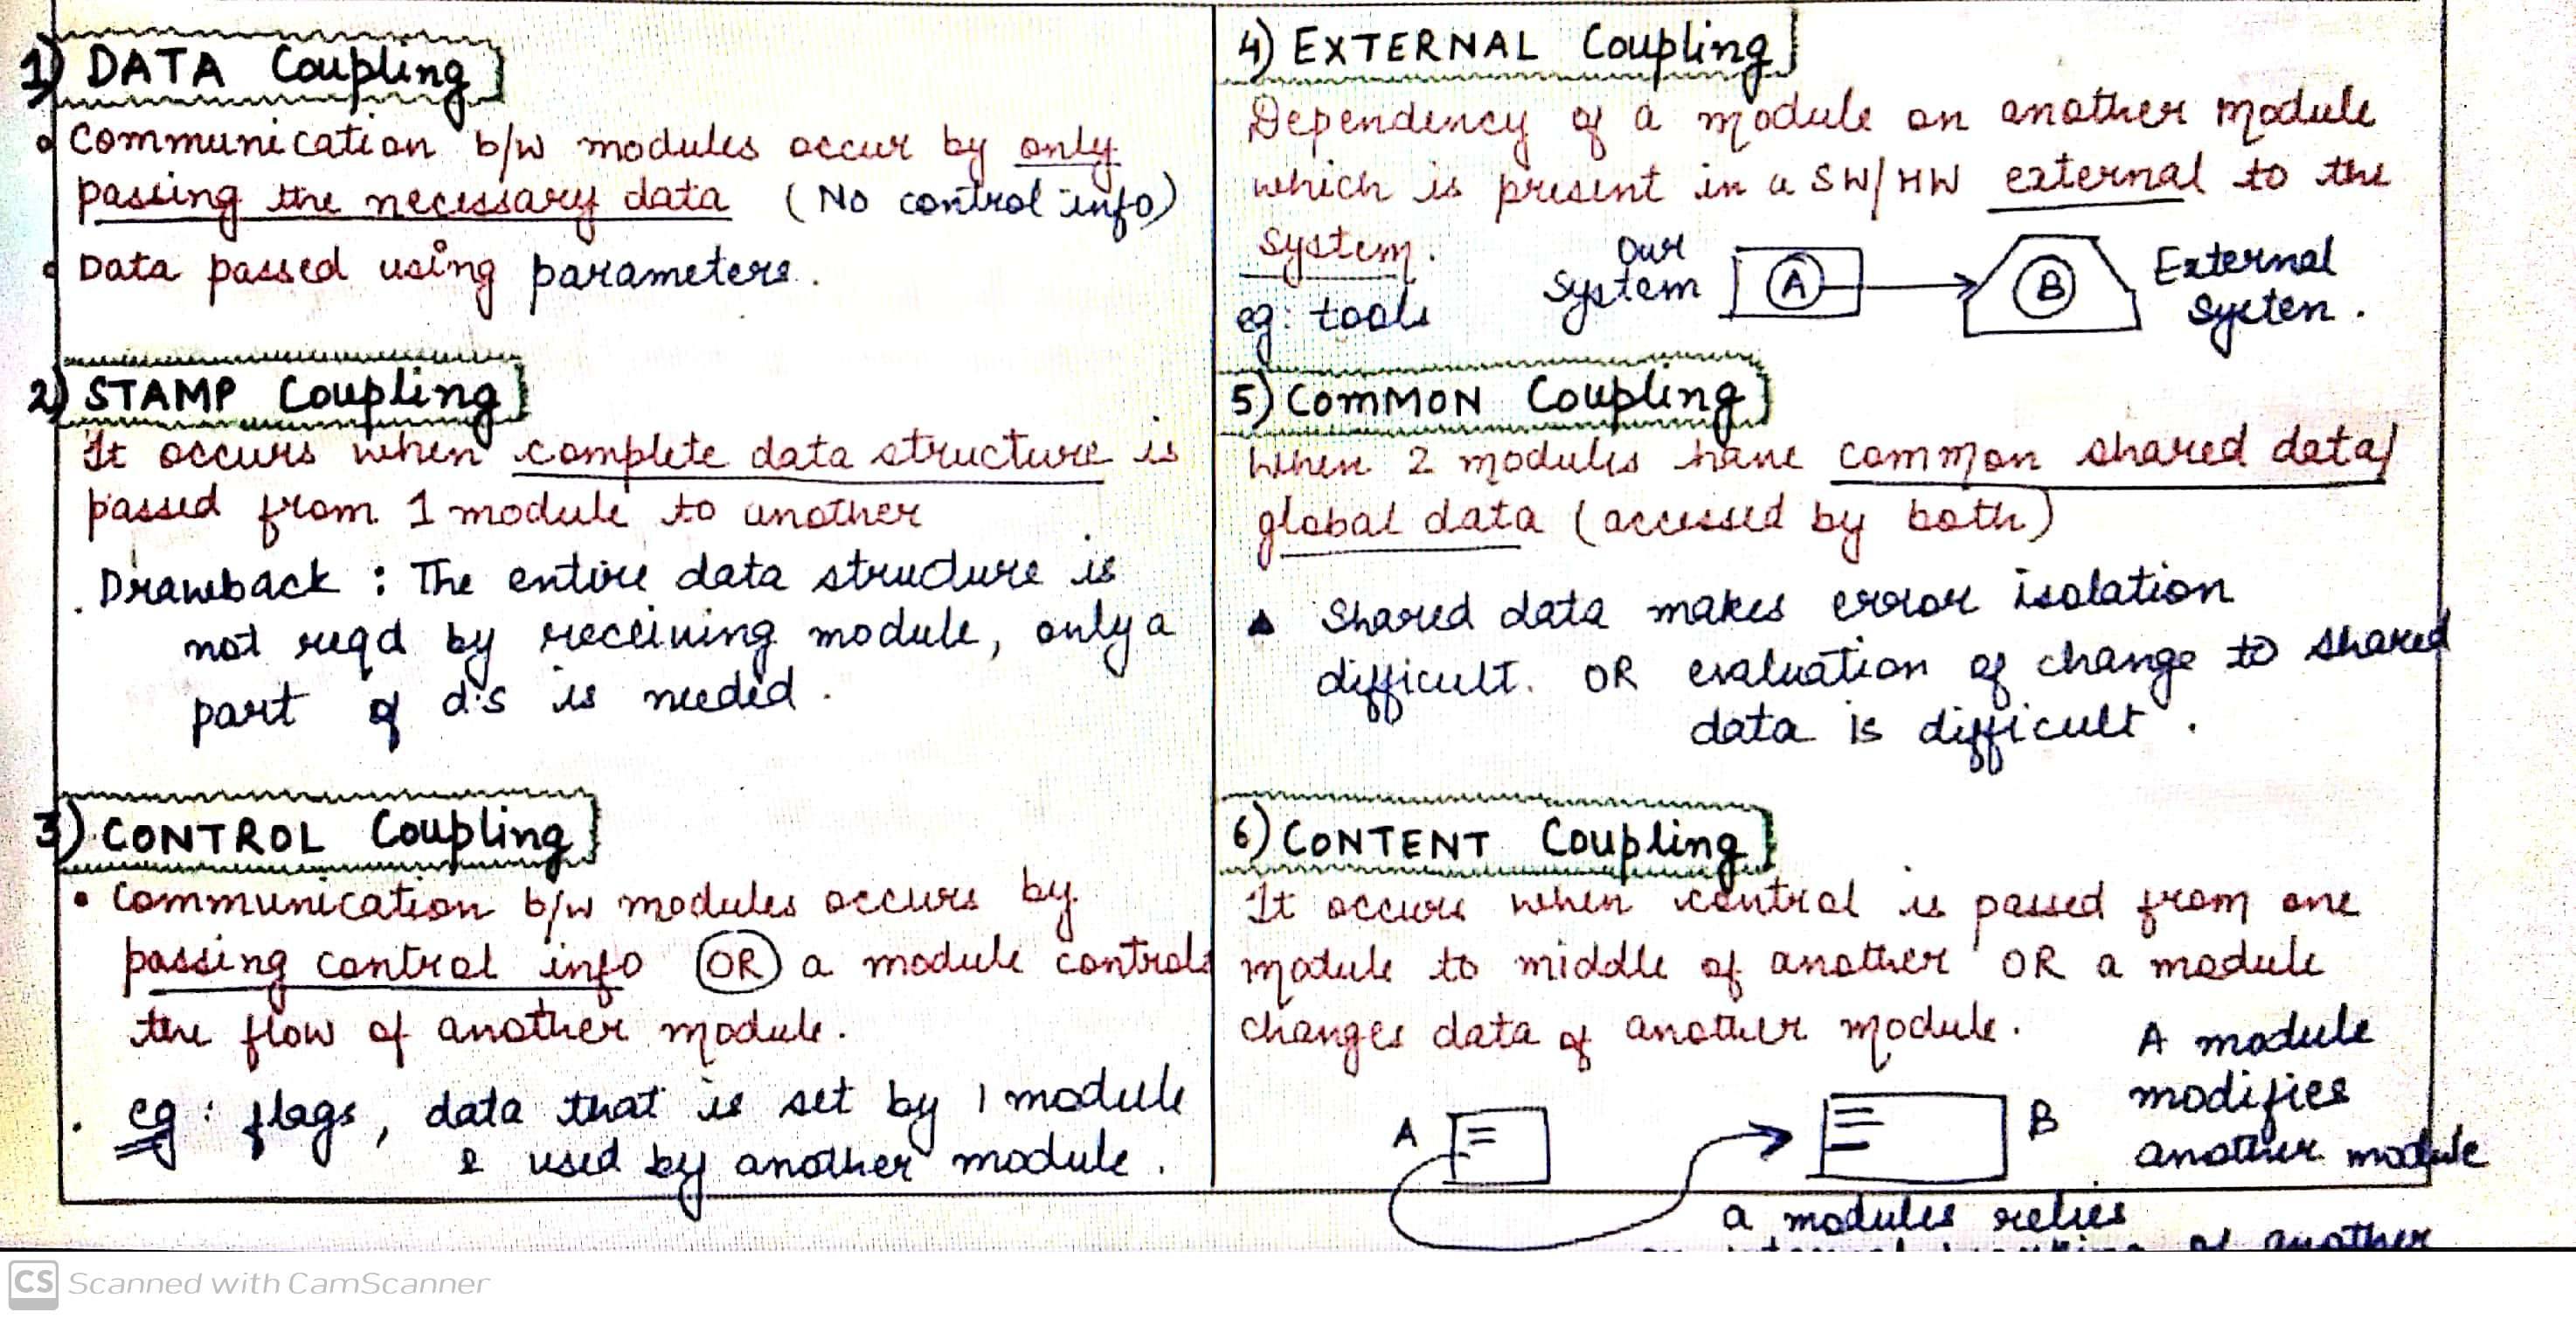 1) DATA Coupling
Communication b/w modules occur by only
passing the necessary data (No control info)
Data passed using parameters.
2) STAMP Coupling
It occurs when complete data structure is
passed from 1 module to another
Drawback : The entire data structure is
not reqd by receiving module, only a
part of d.s is needed.
3) CONTROL Coupling
Communication b/w modules occurs by
passing control info OR a module controls
the flow of another module.
eg: flags, data that is set by 1 module
& used by another module.
4) EXTERNAL Coupling
Dependency of a module on another module
which is present in a SW/HW external to the
system.
eg: tools
Our
System
A
B
External
System.
5) COMMON Coupling
When 2 modules have common shared data/
global data (accessed by both)
Shared data makes error isolation
difficult. OR evaluation of change to shared
data is difficult.
6) CONTENT Coupling
It occurs when control is passed from one
module to middle of another OR a module
changes data of another module.
A module
modifies
another module
A
B
a modules relies
of another
CS Scanned with CamScanner